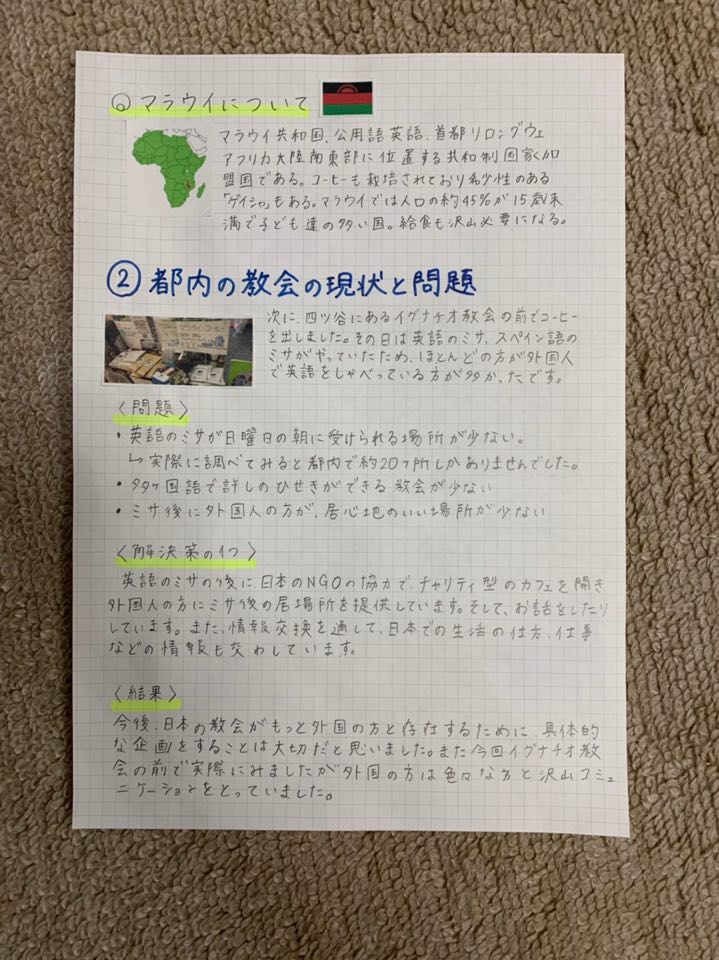 ◎ マラウイについて
マラウイ共和国、公用語英語、首都リロングウェ
アフリカ大陸南東部に位置する共和制国家加
盟国である。コーヒーも栽培されており希少性のある
「ゲイシャ」もある。マラウイでは人口の約45%が15歳未
満で子ども達の多い国。給食も沢山必要になる。
② 都内の教会の現状と問題
マラウイ コーヒー
次に、四ツ谷にあるイグナチオ教会の前でコーヒー
を出しました。その日は英語のミサ、スペイン語の
ミサがやっていたため、ほとんどの方が外国人
で英語をしゃべっている方が多かったです。
〈問題〉
・英語のミサが日曜日の朝に受けられる場所が少ない。
↳実際に調べてみると都内で約20ヶ所しかありませんでした。
・多ヶ国語で許しのひせきができる教会が少ない
・ミサ後に外国人の方が、居心地のいい場所が少ない
〈解決策の1つ〉
英語のミサの後に、日本のNGOの協力で、チャリティ型のカフェを開き
外国人の方にミサ後の居場所を提供しています。そして、お話をしたり
しています。また、情報交換を通して、日本での生活の仕方、仕事
などの情報も交わしています。
〈結果〉
今後、日本の教会がもっと外国の方と存在するために、具体的
な企画をすることは大切だと思いました。また今回イグナチオ教
会の前で実際にみましたが外国の方は色々な方と沢山コミュ
ニケーションをとっていました。